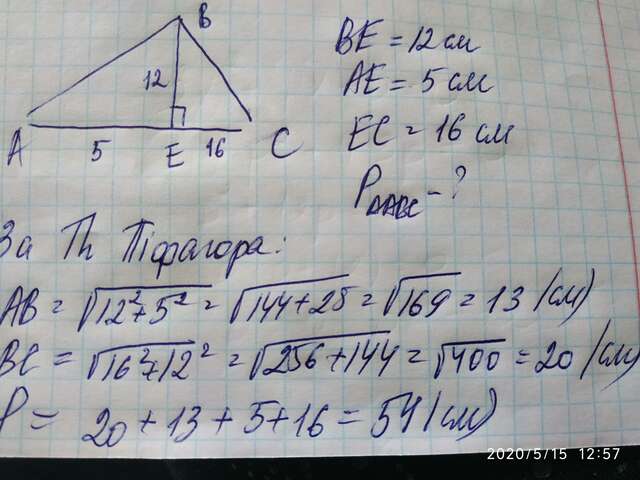 B
12
A 5 E 16 C
BE = 12 см
AE = 5 см
EC = 16 см
P△ABC - ?
За Th Піфагора:
AB = √12²+5² = √144+25 = √169 = 13 (см)
BC = √16²+12² = √256+144 = √400 = 20 (см)
P = 20+13+5+16 = 54 (см)
2020/5/15 12:57